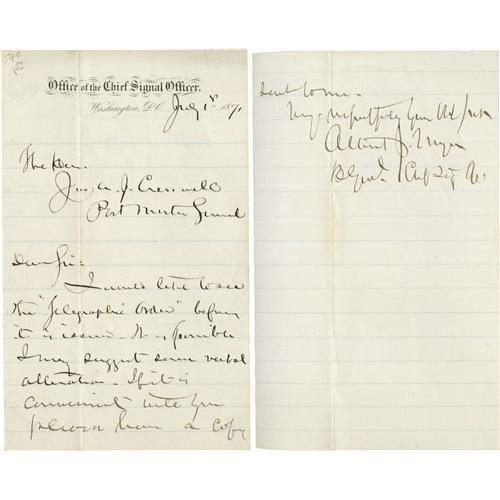 Office of the Chief Signal Officer.
Washington, D.C. July 1st 1871
The Hon.
Jno. A. J. Creswell
Post Master General
Dear Sir:
I would like to see
the "Telegraphic Order" before
it is issued - It is possible
I may suggest some verbal
alteration - If it is
convenient will you
please have a copy
sent to me.
Very respectfully your
Albert J. Myer
B Genl. Chf Sig Of.